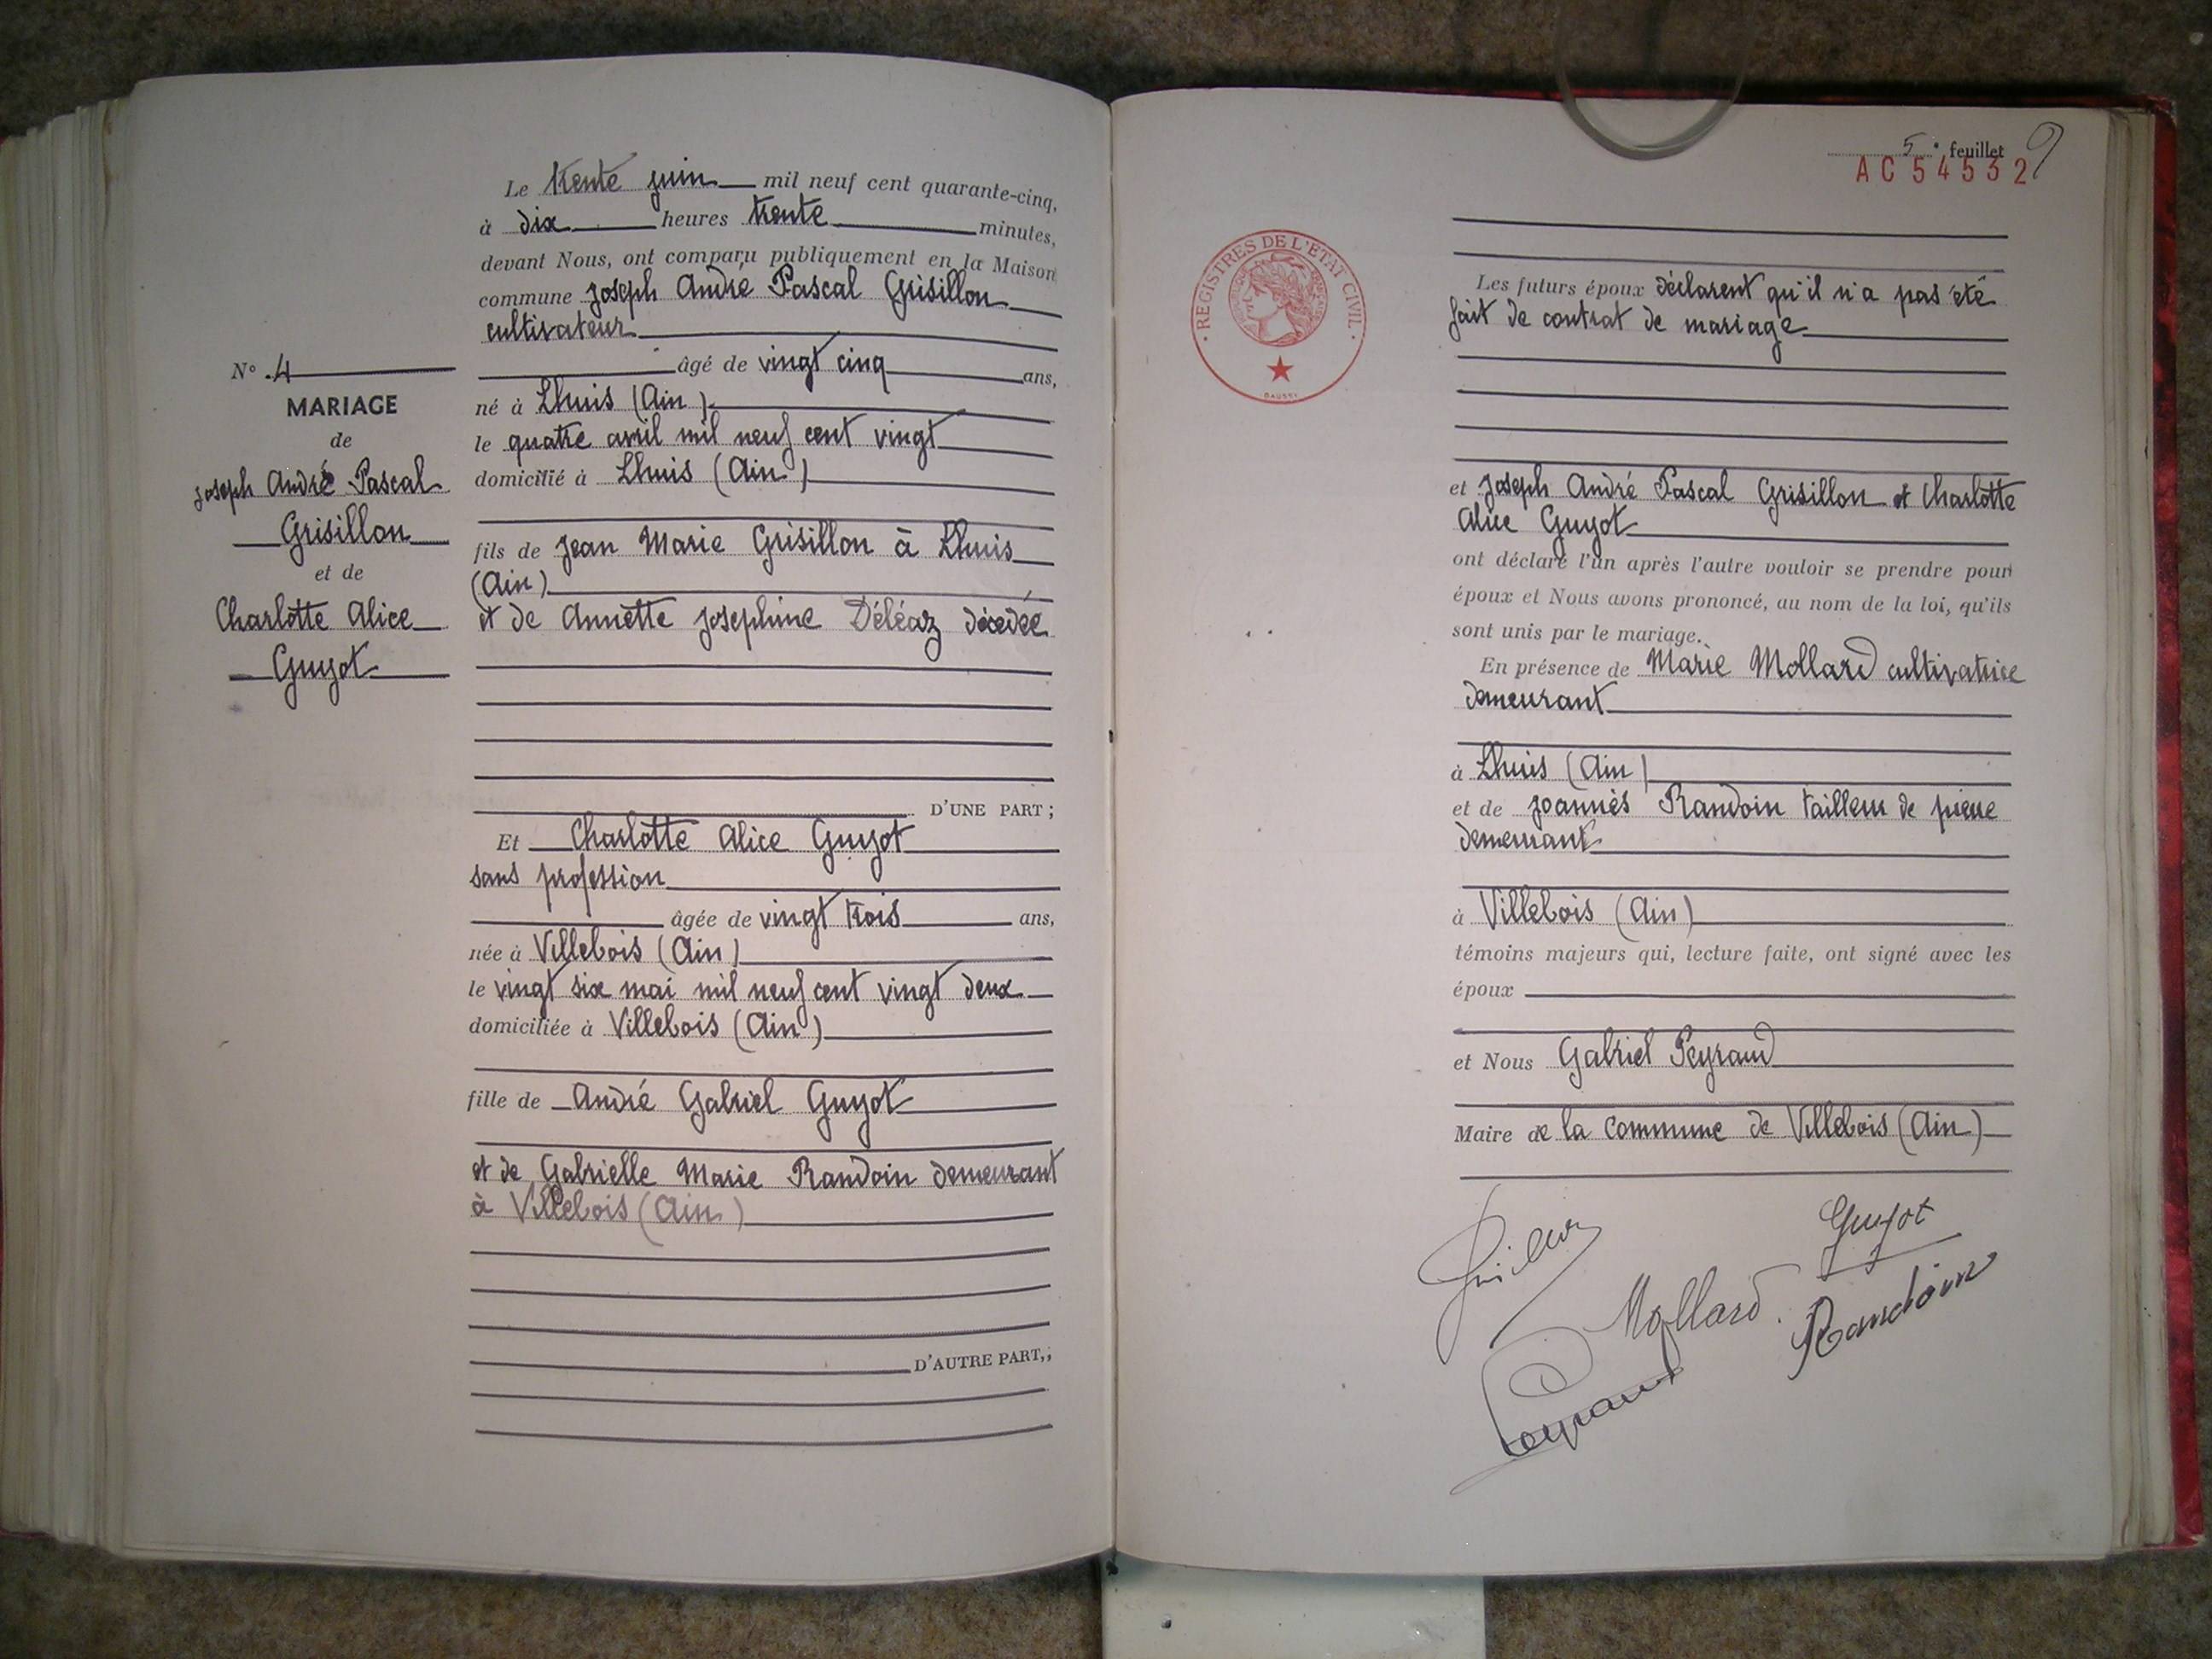 N° 4
MARIAGE
de
Joseph André Pascal
Grisillon
et de
Charlotte Alice
Guyot
Le trente juin mil neuf cent quarante-cinq,
à dix heures trente minutes,
devant Nous, ont comparu publiquement en la Maison
commune Joseph André Pascal Grisillon
cultivateur
âgé de vingt cinq ans,
né à Lhuis (Ain)
le quatre avril mil neuf cent vingt
domicilié à Lhuis (Ain)
fils de Jean Marie Grisillon à Lhuis
(Ain)
et de Annette Josephine Déléaz décedée
D'UNE PART ;
Et Charlotte Alice Guyot
sans profession
âgée de vingt trois ans,
née à Villebois (Ain)
le vingt six mai mil neuf cent vingt deux
domiciliée à Villebois (Ain)
fille de André Gabriel Guyot
et de Gabrielle Marie Randoin demeurant
à Villebois (Ain)
D'AUTRE PART,;
5e feuillet 9
AC 54532
REGISTRES DE L'ÉTAT CIVIL
Les futurs époux déclarent qu'il n'a pas été
fait de contrat de mariage
et Joseph André Pascal Grisillon et Charlotte
Alice Guyot
ont déclaré l'un après l'autre vouloir se prendre pour
époux et Nous avons prononcé, au nom de la loi, qu'ils
sont unis par le mariage.
En présence de Marie Mollard cultivatrice
demeurant
à Lhuis (Ain)
et de Joannès Randoin tailleur de pierre
demeurant
à Villebois (Ain)
témoins majeurs qui, lecture faite, ont signé avec les
époux
et Nous Gabriel Peyraud
Maire de la commune de Villebois (Ain)
Guyot
Mollard
Randoin
Peyraud